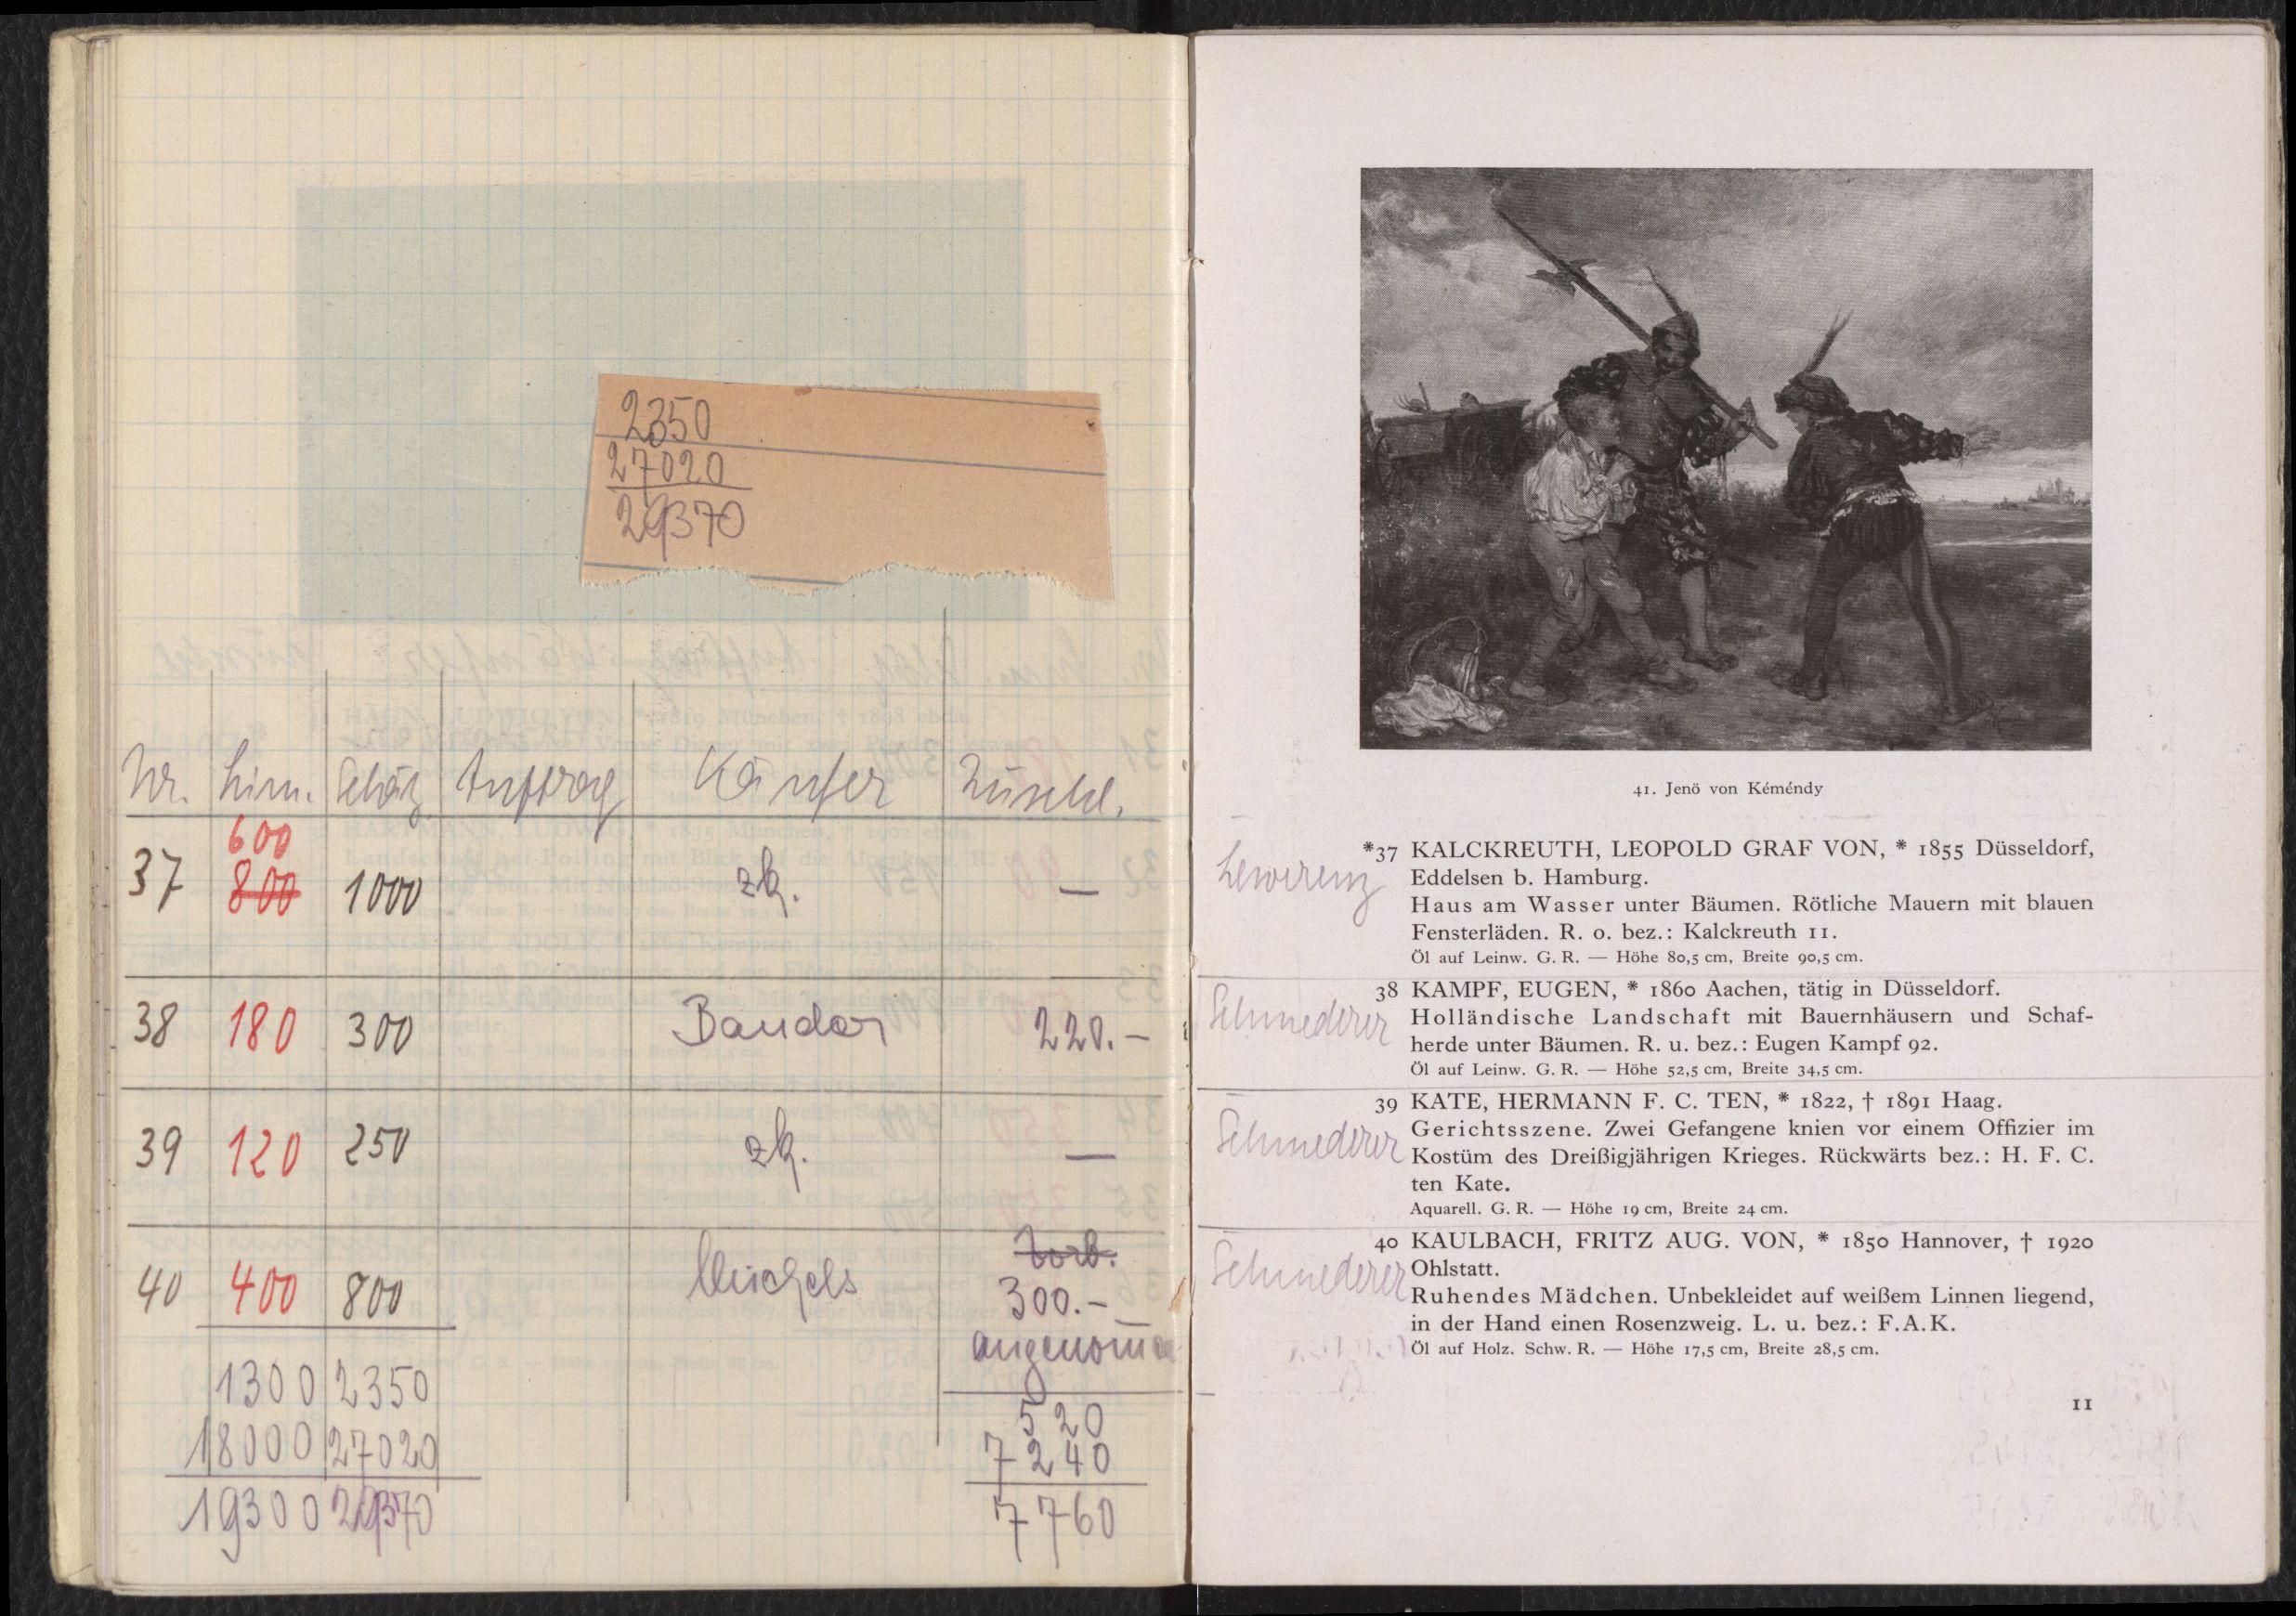 2350
27020
29370
Nr. Lim. Schätz. Auftrag Käufer Zuschl.
600
37 800 1000 zk. —
38 180 300 Bandor 220.-
39 120 250 zk. —
Vorb.
40 400 800 300.-
angenomm
1300 2350 520
18000 27020 7240
19300 29370 7760
41. Jenö von Kéméndy
Lewerenz
*37 KALCKREUTH, LEOPOLD GRAF VON, * 1855 Düsseldorf,
Eddelsen b. Hamburg.
Haus am Wasser unter Bäumen. Rötliche Mauern mit blauen
Fensterläden. R. o. bez.: Kalckreuth 11.
Öl auf Leinw. G. R. — Höhe 80,5 cm, Breite 90,5 cm.
Schmederer
38 KAMPF, EUGEN, * 1860 Aachen, tätig in Düsseldorf.
Holländische Landschaft mit Bauernhäusern und Schaf-
herde unter Bäumen. R. u. bez.: Eugen Kampf 92.
Öl auf Leinw. G. R. — Höhe 52,5 cm, Breite 34,5 cm.
Schmederer
39 KATE, HERMANN F. C. TEN, * 1822, † 1891 Haag.
Gerichtsszene. Zwei Gefangene knien vor einem Offizier im
Kostüm des Dreißigjährigen Krieges. Rückwärts bez.: H. F. C.
ten Kate.
Aquarell. G. R. — Höhe 19 cm, Breite 24 cm.
Schmederer
40 KAULBACH, FRITZ AUG. VON, * 1850 Hannover, † 1920
Ohlstatt.
Ruhendes Mädchen. Unbekleidet auf weißem Linnen liegend,
in der Hand einen Rosenzweig. L. u. bez.: F.A.K.
Öl auf Holz. Schw. R. — Höhe 17,5 cm, Breite 28,5 cm.
11